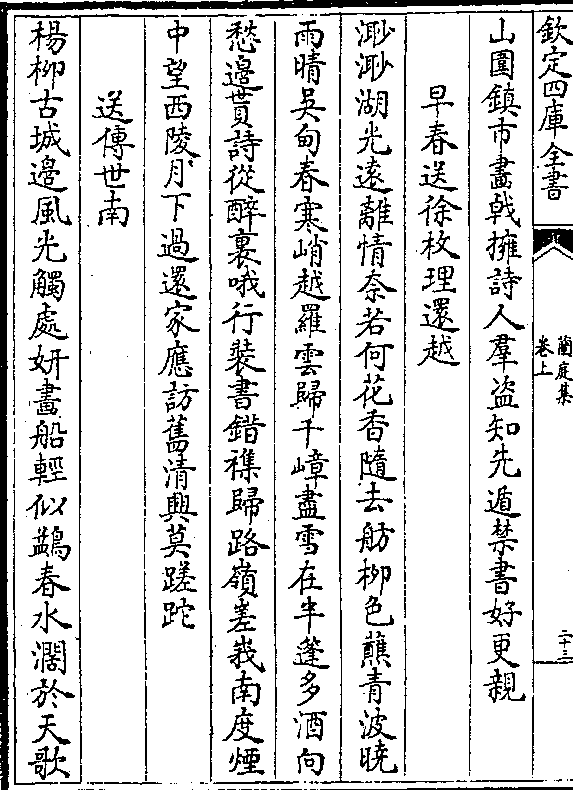 欽定四庫全書
蘭庭集
卷上
二十三
山圍鎮市畫戟擁詩人羣盗知先遁禁書好更親
早春送徐枚理還越
渺渺湖光遠離情奈若何花香隨去舫柳色蘸青波曉
雨晴吳甸春寒峭越羅雲歸千嶂盡雪在半篷多酒向
愁邊貰詩從醉裏哦行裝書錯襍歸路嶺差峩南度煙
中望西陵月下過還家應訪舊清興莫蹉跎
送傳世南
楊柳古城邉風光觸處妍畫船輕似鷁春水濶於天歌